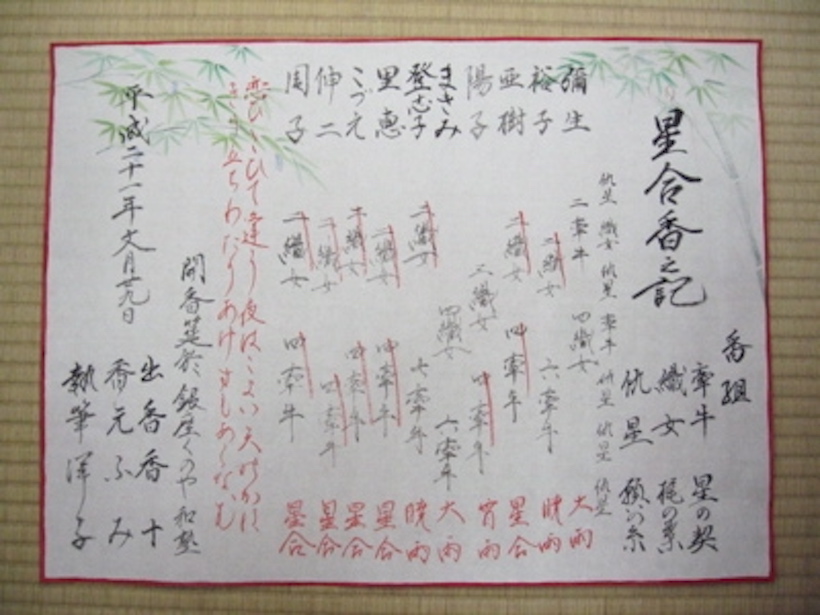 星合香之記
香組
牽牛 星の契
織女 梶の葉
仇星 願の糸
仇星 織女 仇星 牽牛 仇星 仇星 仇星
彌生 二牽牛 四織女 大雨
裕子 二織女 六牽牛 暁雨
亜樹 二織女 四牽牛 星合
陽子 三織女 四牽牛 宵雨
まさみ 四織女 六牽牛 大雨
登志子 二織女 七牽牛 暁雨
里恵 二織女 四牽牛 星合
こづ元 二織女 四牽牛 星合
伸二 二織女 四牽牛 星合
周子 二織女 四牽牛 星合
恋ひ恋ひて逢う夜はこよい天の川
きり立ちわたりあけずもあらなむ
聞香筵於 銀座くのや 和塾
出香 香十
香元 ふみ
執筆 洋子
平成二十一年六月廿九日